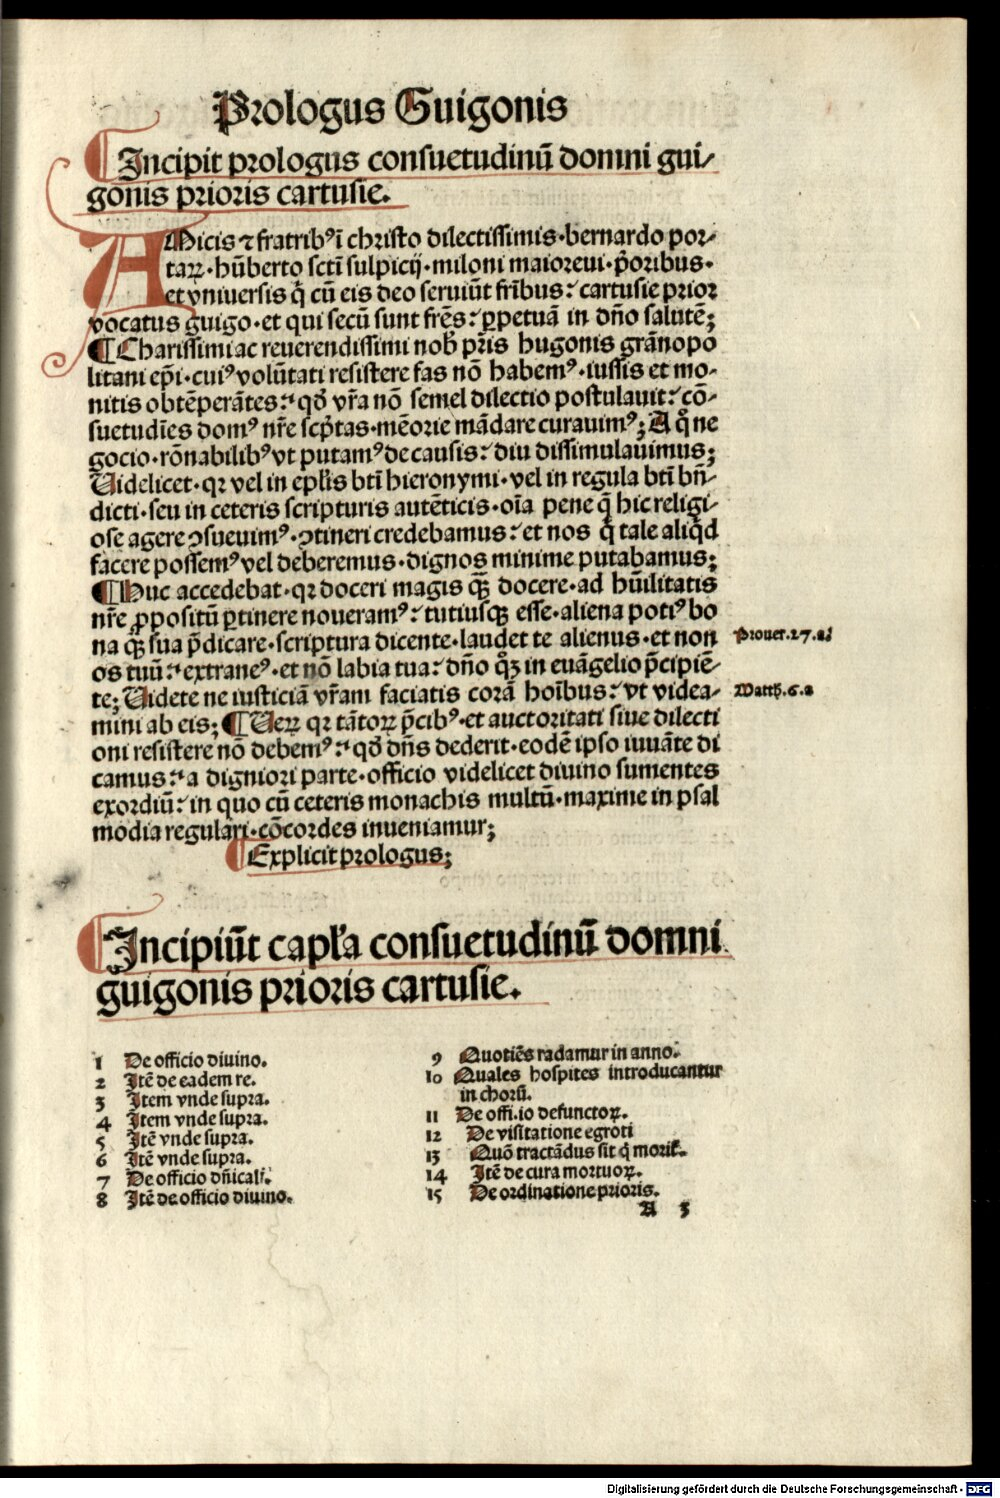 Prologus Guigonis
¶Incipit prologus consuetudinū domni gui/
gonis prioris cartusie.
AMicis ⁊ fratribꝰ ī christo dilectissimis·bernardo por/
taꝝ·hūberto scti sulpicij·miloni maioreui·p̄oribus·
et vniuersis q̄ cū eis deo seruiūt fr̄ibus: cartusie prior
vocatus guigo·et qui secū sunt fr̄es: ꝑpetuā in dn̄o salutē;
¶Charissimi ac reuerendissimi nob̄ pr̄is hugonis grānopo
litani ep̄i·cuiꝰ volūtati resistere fas nō habemꝰ·iussis et mo-
nitis obtēperātes: qd̄ vr̄a nō semel dilectio postulauit: cō-
suetudīes domꝰ nr̄e scp̄tas·mēorie mādare curauimꝰ; A qͦ ne
gocio·rōnabilibꝰ vt putamꝰ de causis: diu dissimulauimus;
Uidelicet·qꝛ vel in ep̄lis bt̄i hieronymi·vel in regula bt̄i bn̄-
dicti·seu in ceteris scripturis autēticis·oīa pene q̄ hic religi-
ose agere ꝯsueuimꝰ·ꝯtineri credebamus: et nos q̄ tale aliq̄d
facere possemꝰ vel deberemus·dignos minime putabamus;
¶Huc accedebat·qꝛ doceri magis qꝫ̄ docere·ad hūilitatis
nr̄e ꝓpositū ꝑtinere noueramꝰ: tutiusqꝫ esse·aliena potiꝰ bo
na qꝫ̄ sua p̄dicare·scriptura dicente·laudet te alienus·et non
os tuū: extraneꝰ·et nō labia tua: dn̄o qͦꝫ in euāgelio p̄cipiē-
te; Uidete ne iusticiā vr̄am faciatis corā hoībus: vt videa-
mini ab eis; ¶Ueꝝ qꝛ tātoꝝ p̄cibꝰ·et auctoritati siue dilecti
oni resistere nō debemꝰ: qd̄ dn̄s dederit·eodē ipso iuuāte di
camus: a digniori parte·officio videlicet diuino sumentes
exordiū: in quo cū ceteris monachis multū·maxime in psal
modia regulari·cōcordes inueniamur;
¶Explicit prologus;
Prouer.27.a
Matth.6.a
¶Incipiūt capl̄a consuetudinū domni
guigonis prioris cartusie.
1 De officio diuino.
2 Itē de eadem re.
3 Item vnde supra.
4 Item vnde supra.
5 Itē vnde supra.
6 Itē vnde supra.
7 De officio dn̄icali.
8 Itē de officio diuino.
9 Quotiēs radamur in anno.
10 Quales hospites introducantur
in chorū.
11 De offi.io defunctoꝝ.
12 De visitatione egroti
13 Quō tractādus sit q̄ morit̄.
14 Itē de cura mortuoꝝ.
15 De ordinatione prioris.
A 3
Digitalisierung gefördert durch die Deutsche Forschungsgemeinschaft - DFG